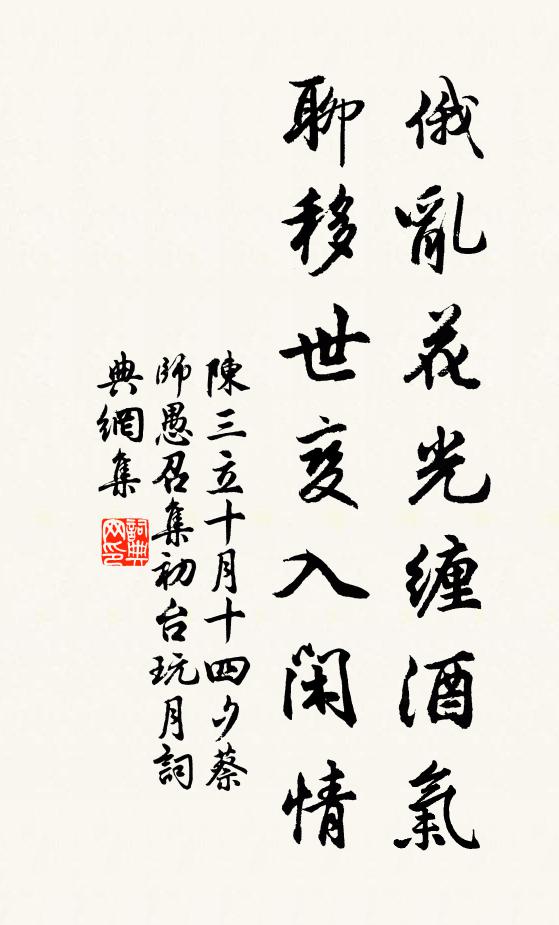 俄亂花光纏酒氣
聊移世变入閑情
陳三立十月十四夕蔡
師愚召集初台玩月詞
典網集
詞典
网印